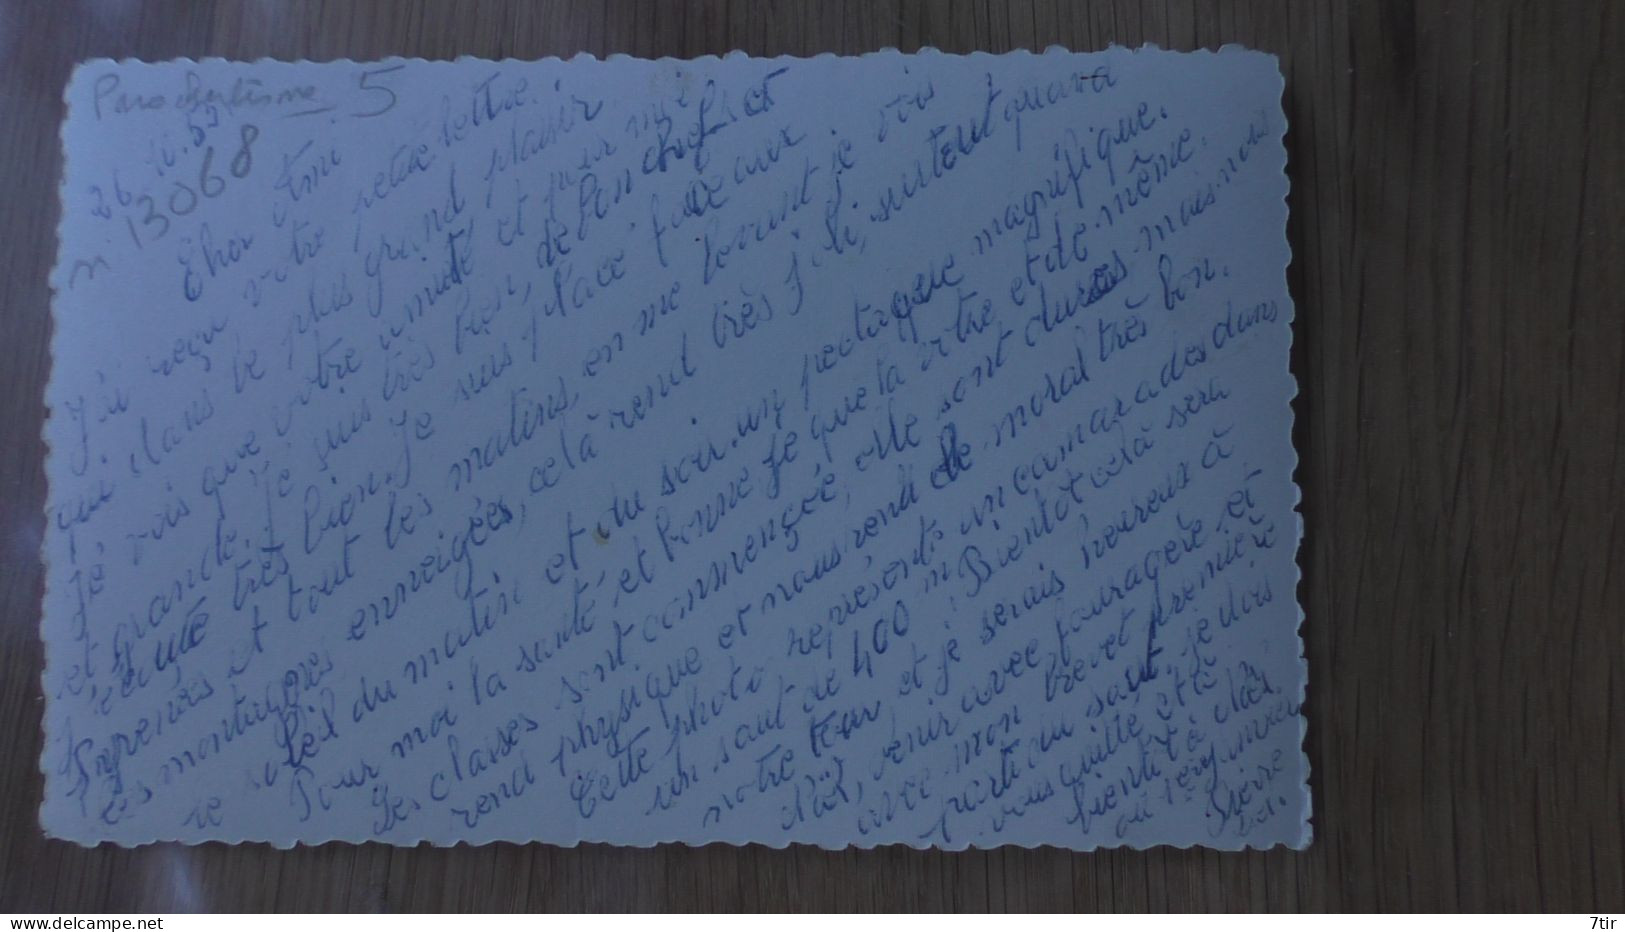 Parachutisme 5
26.11.59
n° 13068
Cher Ami
J'ai reçu votre petite lettre.
qui dans le plus grand plaisir
Je vois que votre amitié et pour moi
et grande. Je suis très bien, de bon chefs et
très bien. Je suis place face aux
Pyrenées et tout les matins, en me levant je vois
les montagnes enneigées, celà rend très joli, surtout quand
le soleil du matin et du soir. un spectaque magnifique.
Pour moi la santé, et bonne je que la votre et de même.
Les classes sont commençée, elle sont dures mais nous
rend physique et nous rend le moral très bon.
Cette photo représente un camarades dans
un saut de 400 m. Bientot celà sera
notre tour et je serais heureux à
venir avec fouragère et
avec mon brevet première
partie du saut. je dois
vous quitte et à
bientôt à
au régiment
Pierre